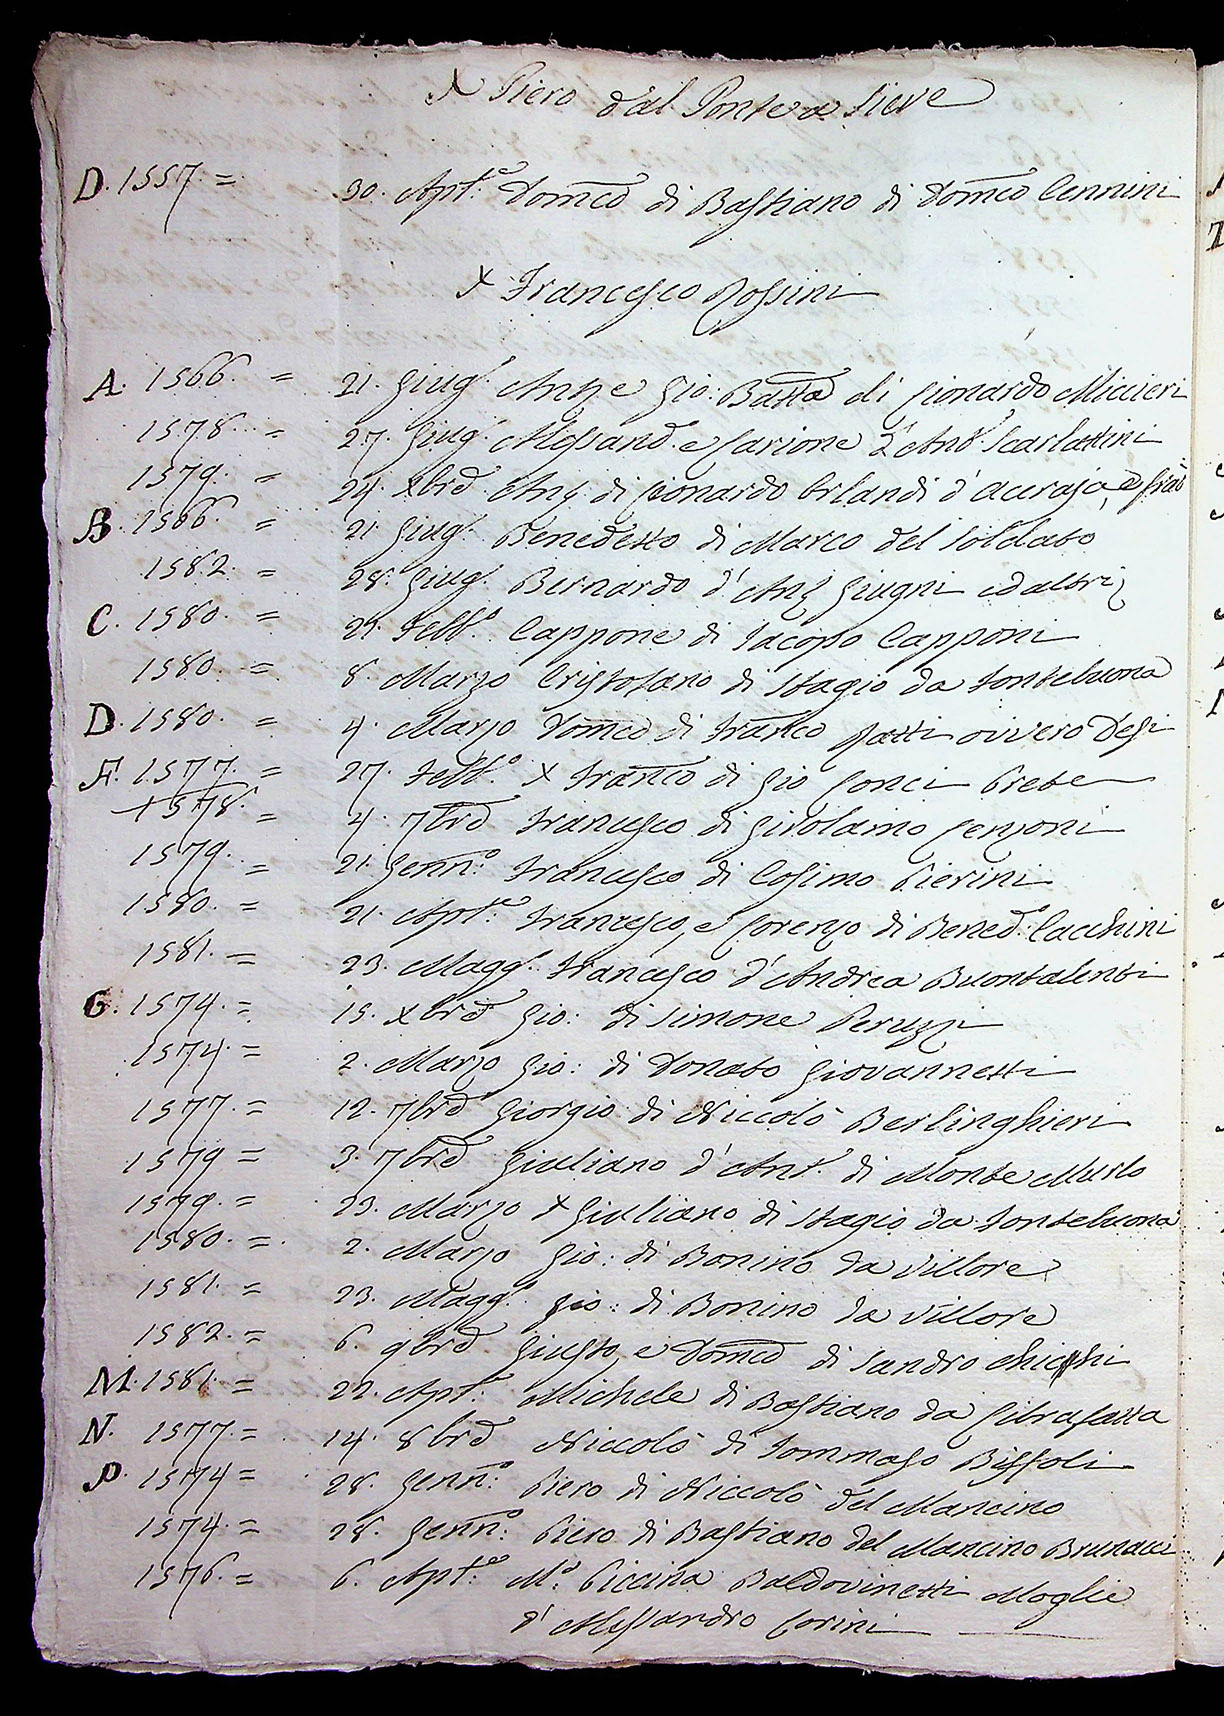 X Piero dal Ponte a Sieve
D. 1557. = 30. Apl.e Dom.co di Bastiano di Dom.co Cennini
X Francesco Rossini
A. 1566. = 21. Giug.o Ant.o e Gio: Batta di Lionardo Miccieri
1578. = 27. Giug.o Alessand.o e Carione d'Ant.o Scarlattini
1579. = 24. Xbre Ang.o di Lionardo Orlandi d'
B. 1566. = 21 Giug.o Benedetto di Marco del Soldato
1582. = 28. Giug.o Bernardo d'Ang.o Giugni ed altri
C. 1580. = 27. Febb.o Cappone di Jacopo Capponi
1580. = 8. Marzo Cristofano di Stagio da Fontebuona
D. 1580. = 4. Marzo Dom.co di Fran.co Ratti ovvero Desi
F. 1577. = 27. Febb.o X Fran.co di Gio Conci Prete
1578. = 4. 7bre Francesco di Girolamo Lenzoni
1579. = 21. Genn.o Francesco di Cosimo Pierini
1580. = 21. Apl.e Francesco, e Lorenzo di Bened.o Cacchini
1581. = 23. Magg.o Francesco d'Andrea Buontalenti
G. 1574. = 15. Xbre Gio: di Simone Peruzzi
1574. = 2. Marzo Gio: di Donato Giovannetti
1577. = 12. 7bre Giorgio di Niccolò Berlinghieri
1579 = 3. 7bre Giuliano d'Ant.o di Monte Murlo
1579. = 23. Marzo X Giuliano di Stagio da Fontebuona
1580. = 2. Marzo Gio: di Bonino da Villore
1581. = 23. Magg.o Gio: di Bonino da Villore
1582. = 6. 9bre Giusto, e Dom.co di Sandro
M. 1581. = 22. Apl.e Michele di Bastiano da Librafatta
N. 1577. = 14. 8bre Niccolò di Tommaso Biffoli
P. 1574 = 28. Genn.o Piero di Niccolò del Mancino
1574. = 28. Genn.o Piero di Bastiano del Mancino Brunacci
1576. = 6. Apl.e M.a Piccina Baldovinetti Moglie
d'Alessandro Corini